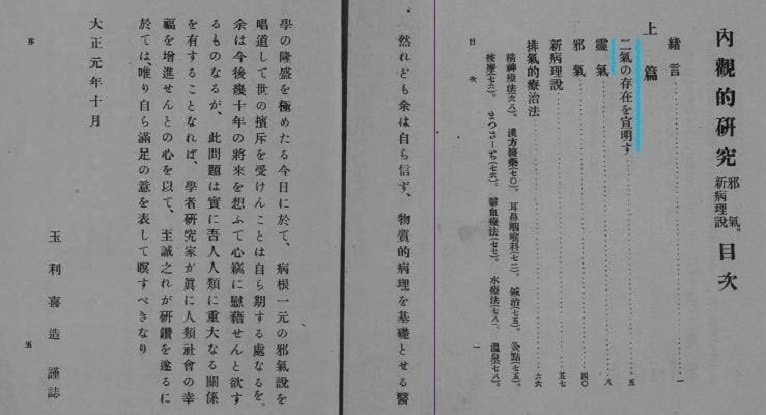 內觀的硏究 邪氣。新病理說 目次
緖言 一
上篇
二氣の存在を宣明す 五
靈氣 八
邪氣 四〇
新病理說 五七
排氣的療治法 六六
精神療法(六八)。 漢方醫藥(七〇)。 耳鼻咽喉科(七二)。 鍼治(七五)。 灸點(七五)。
按摩(七六)。 まつさーぢ(七六)。 鬱血療法(七七)。 水療法(七八)。 溫泉(七八)。
目次 一
然れども余は自ら信ず、物質的病理を基礎とせる醫
學の隆盛を極めたる今日に於て、病根一元の邪氣說を
唱道して世の擯斥を受けんことは自ら期する處なるを。
余は今後幾十年の將來を想ふて心竊に慰藉せんと欲す
るものなるが、此問題は實に吾人人類に重大なる關係
を有することなれば、學者硏究家が眞に人類社會の幸
福を增進せんとの心を以て、至誠之れが硏鑽を遂るに
於ては唯り自ら滿足の意を表して瞑すべきなり
大正元年十月
玉利喜造謹誌
序 五